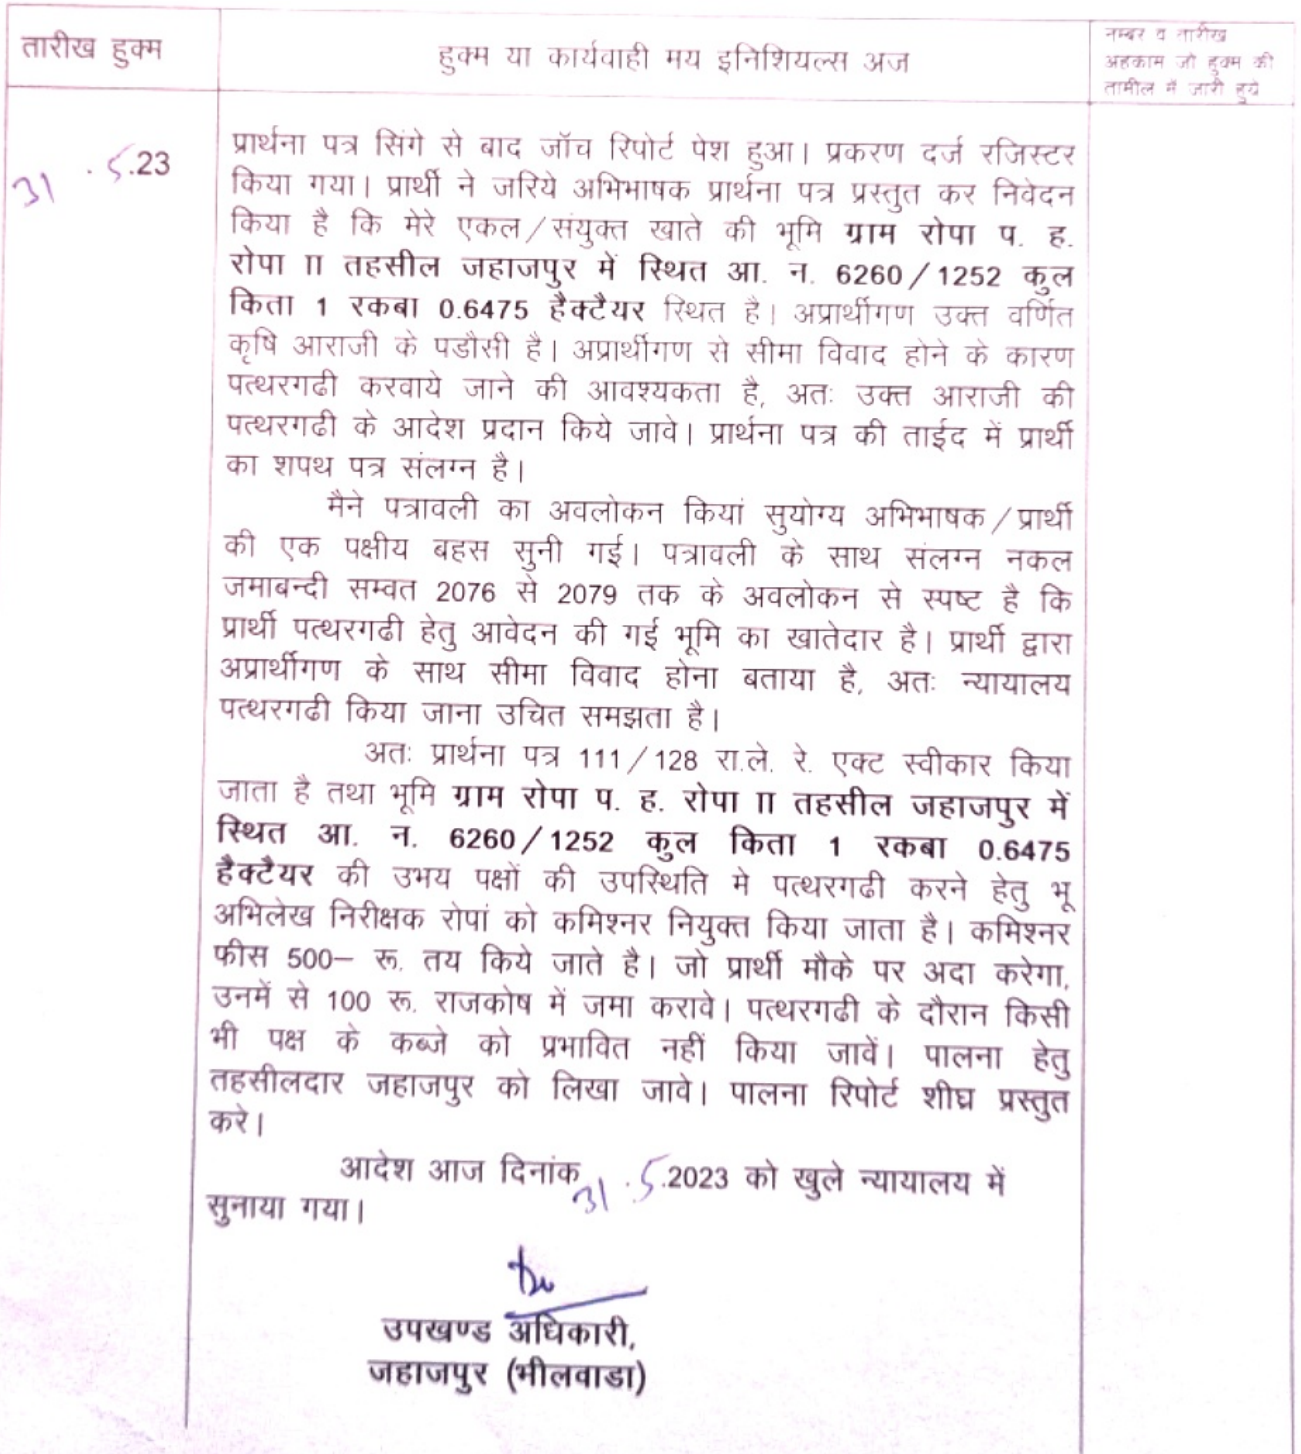 तारीख हुक्म
हुक्म या कार्यवाही मय इनिशियल्स अज
नम्बर व तारीख
अहकाम जो हुक्म की
तामील में जारी हुये
31.5.23
प्रार्थना पत्र सिंगे से बाद जॉच रिपोर्ट पेश हुआ। प्रकरण दर्ज रजिस्टर
किया गया। प्रार्थी ने जरिये अभिभाषक प्रार्थना पत्र प्रस्तुत कर निवेदन
किया है कि मेरे एकल/संयुक्त खाते की भूमि ग्राम रोपा प. ह.
रोपा II तहसील जहाजपुर में स्थित आ. न. 6260/1252 कुल
किता 1 रकबा 0.6475 हैक्टैयर स्थित है। अप्रार्थीगण उक्त वर्णित
कृषि आराजी के पडौसी है। अप्रार्थीगण से सीमा विवाद होने के कारण
पत्थरगढी करवाये जाने की आवश्यकता है, अतः उक्त आराजी की
पत्थरगढी के आदेश प्रदान किये जावे। प्रार्थना पत्र की ताईद में प्रार्थी
का शपथ पत्र संलग्न है।
मैने पत्रावली का अवलोकन कियां सुयोग्य अभिभाषक/प्रार्थी
की एक पक्षीय बहस सुनी गई। पत्रावली के साथ संलग्न नकल
जमाबन्दी सम्वत 2076 से 2079 तक के अवलोकन से स्पष्ट है कि
प्रार्थी पत्थरगढी हेतु आवेदन की गई भूमि का खातेदार है। प्रार्थी द्वारा
अप्रार्थीगण के साथ सीमा विवाद होना बताया है, अतः न्यायालय
पत्थरगढी किया जाना उचित समझता है।
अतः प्रार्थना पत्र 111/128 रा.ले. रे. एक्ट स्वीकार किया
जाता है तथा भूमि ग्राम रोपा प. ह. रोपा II तहसील जहाजपुर में
स्थित आ. न. 6260/1252 कुल किता 1 रकबा 0.6475
हैक्टैयर की उभय पक्षों की उपस्थिति मे पत्थरगढी करने हेतु भू
अभिलेख निरीक्षक रोपां को कमिश्नर नियुक्त किया जाता है। कमिश्नर
फीस 500– रू. तय किये जाते है। जो प्रार्थी मौके पर अदा करेगा,
उनमें से 100 रू. राजकोष में जमा करावे। पत्थरगढी के दौरान किसी
भी पक्ष के कब्जे को प्रभावित नहीं किया जावें। पालना हेतु
तहसीलदार जहाजपुर को लिखा जावे। पालना रिपोर्ट शीघ्र प्रस्तुत
करे।
आदेश आज दिनांक 31.5.2023 को खुले न्यायालय में
सुनाया गया।
उपखण्ड अधिकारी,
जहाजपुर (भीलवाडा)